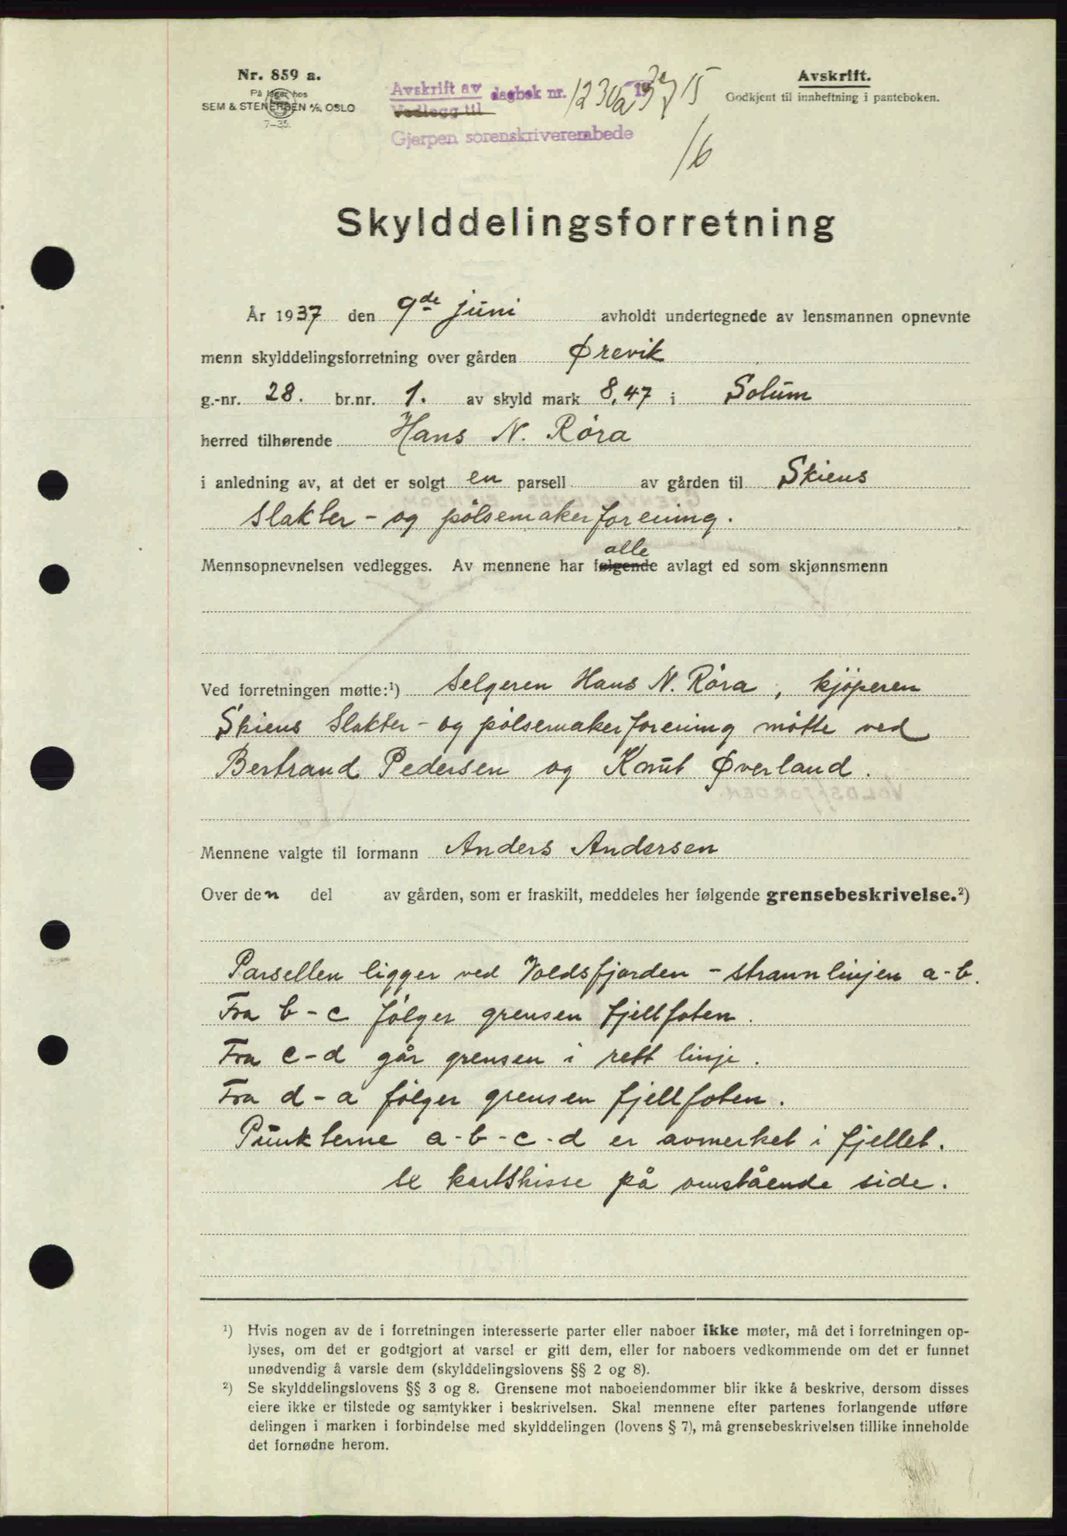 Nr. 859 a.
På lager hos
SEM & STENERSEN A/S, OSLO
7-35.
Avskrift av dagbok nr. 1230a 1937 15/6
Vedlegg til
Gjerpen sorenskriverembede
Avskrift.
Godkjent til innheftning i panteboken.
Skylddelingsforretning
År 1937 den 9de juni avholdt undertegnede av lensmannen opnevnte
menn skylddelingsforretning over gården Ørevik
g.-nr. 28. br.nr. 1. av skyld mark 8,47 i Solum
herred tilhørende Hans N. Røra
i anledning av, at det er solgt en parsell av gården til Skiens
Slakter - og pølsemakerforening.
Mennsopnevnelsen vedlegges. Av mennene har følgende alle avlagt ed som skjønnsmenn
Ved forretningen møtte:¹) Selgeren Hans N. Røra, kjøperen
Skiens Slakter - og pølsemakerforening møtte ved
Bertrand Pedersen og Knut Øverland.
Mennene valgte til formann Anders Andersen
Over den del av gården, som er fraskilt, meddeles her følgende grensebeskrivelse.²)
Parsellen ligger ved Voldsfjorden - strannlinjen a-b.
Fra b-c følger grensen fjellfoten.
Fra c-d går grensen i rett linje.
Fra d-a følger grensen fjellfoten.
Punkterne a-b-c-d er avmerket i fjellet.
Se kartskisse på omstående side.
¹) Hvis nogen av de i forretningen interesserte parter eller naboer ikke møter, må det i forretningen op-
lyses, om det er godtgjort at varsel er gitt dem, eller for naboers vedkommende om det er funnet
unødvendig å varsle dem (skylddelingslovens §§ 2 og 8).
²) Se skylddelingslovens §§ 3 og 8. Grensene mot naboeiendommer blir ikke å beskrive, dersom disses
eiere ikke er tilstede og samtykker i beskrivelsen. Skal mennene efter partenes forlangende utføre
delingen i marken i forbindelse med skylddelingen (lovens § 7), må grensebeskrivelsen tillike inneholde
det fornødne herom.